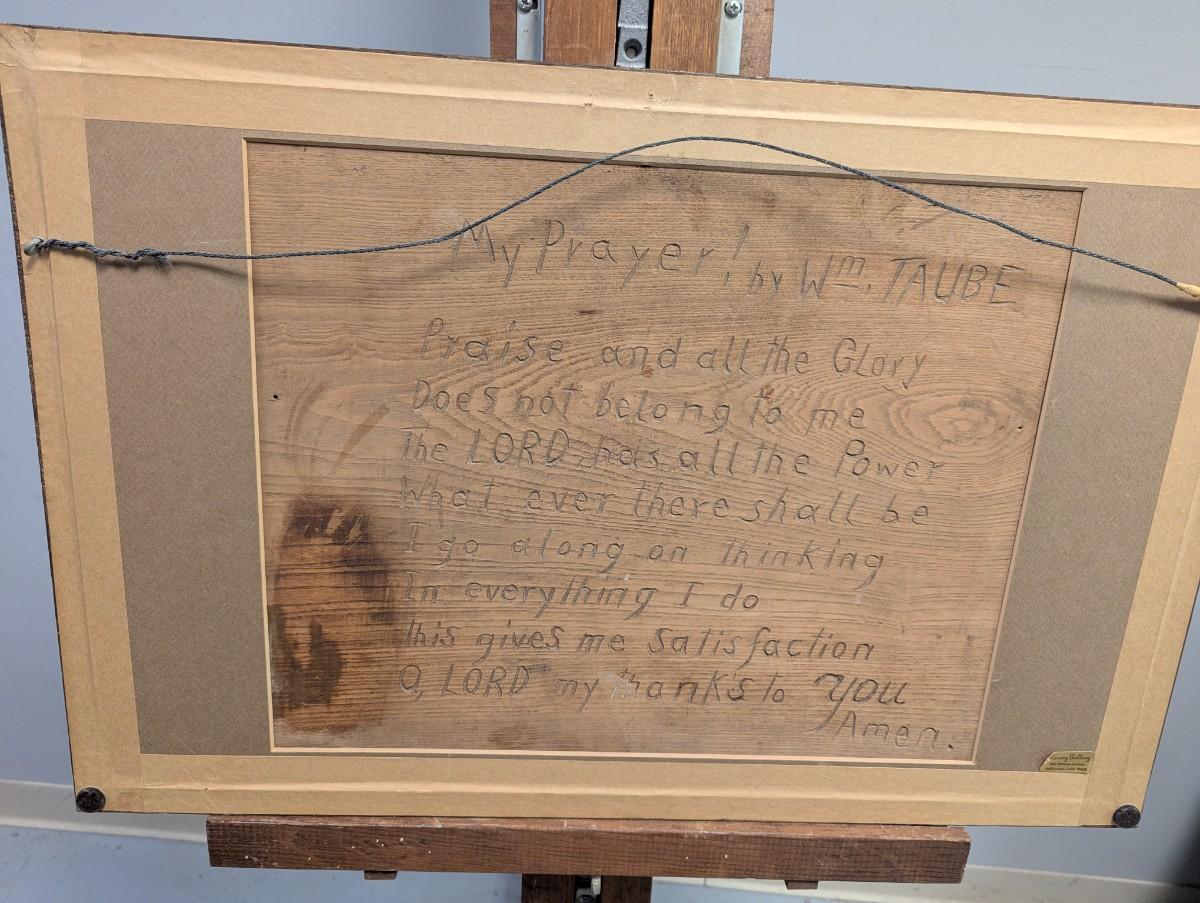 My Prayer! by Wm. TAUBE
Praise and all the Glory
Does not belong to me
The LORD has all the Power
What ever there shall be
I go along on thinking
In everything I do
This gives me satisfaction
O, LORD my thanks to YOU
Amen.
Gallery